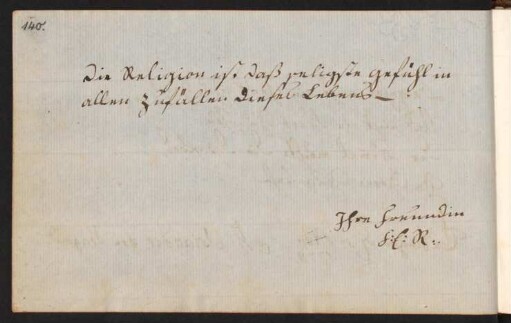 140.
Die Religion ist daß seligste Gefühl in
allen Zufällen dieses Lebens —
Ihre Freundin
R.